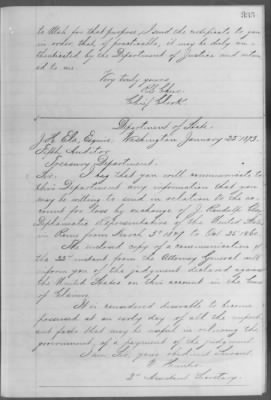 335
to Utah for that purpose, I send the certificate to you
in order that, if practicable, it may be duly au-
thenticated by the Department of Justice and return
ed to me.
Very truly yours,
Chief Clerk.
Department of State.
Washington January 25 1873.
J. H. Ela, Esquire,
Fifth Auditor
Treasury Department.
Sir: I beg that you will communicate to
this Department any information that you
may be willing to send in relation to the ac-
count for loss by exchange of J. Randolph Clay
Diplomatic Representative of the United States
in Peru from March 3d 1847 to Oct 25 1860.
The inclosed copy of a communication of
the 22d instant from the Attorney General will
inform you of the judgment declared against
the United States on this account in the Court
of Claims.
It is considered desirable to become
possessed at an early day of all the import-
ant facts that may be useful in relieving the
government of a payment of the judgment.
I am, Sir, your obedient Servant
J. Hunter
2d Assistant Secretary.